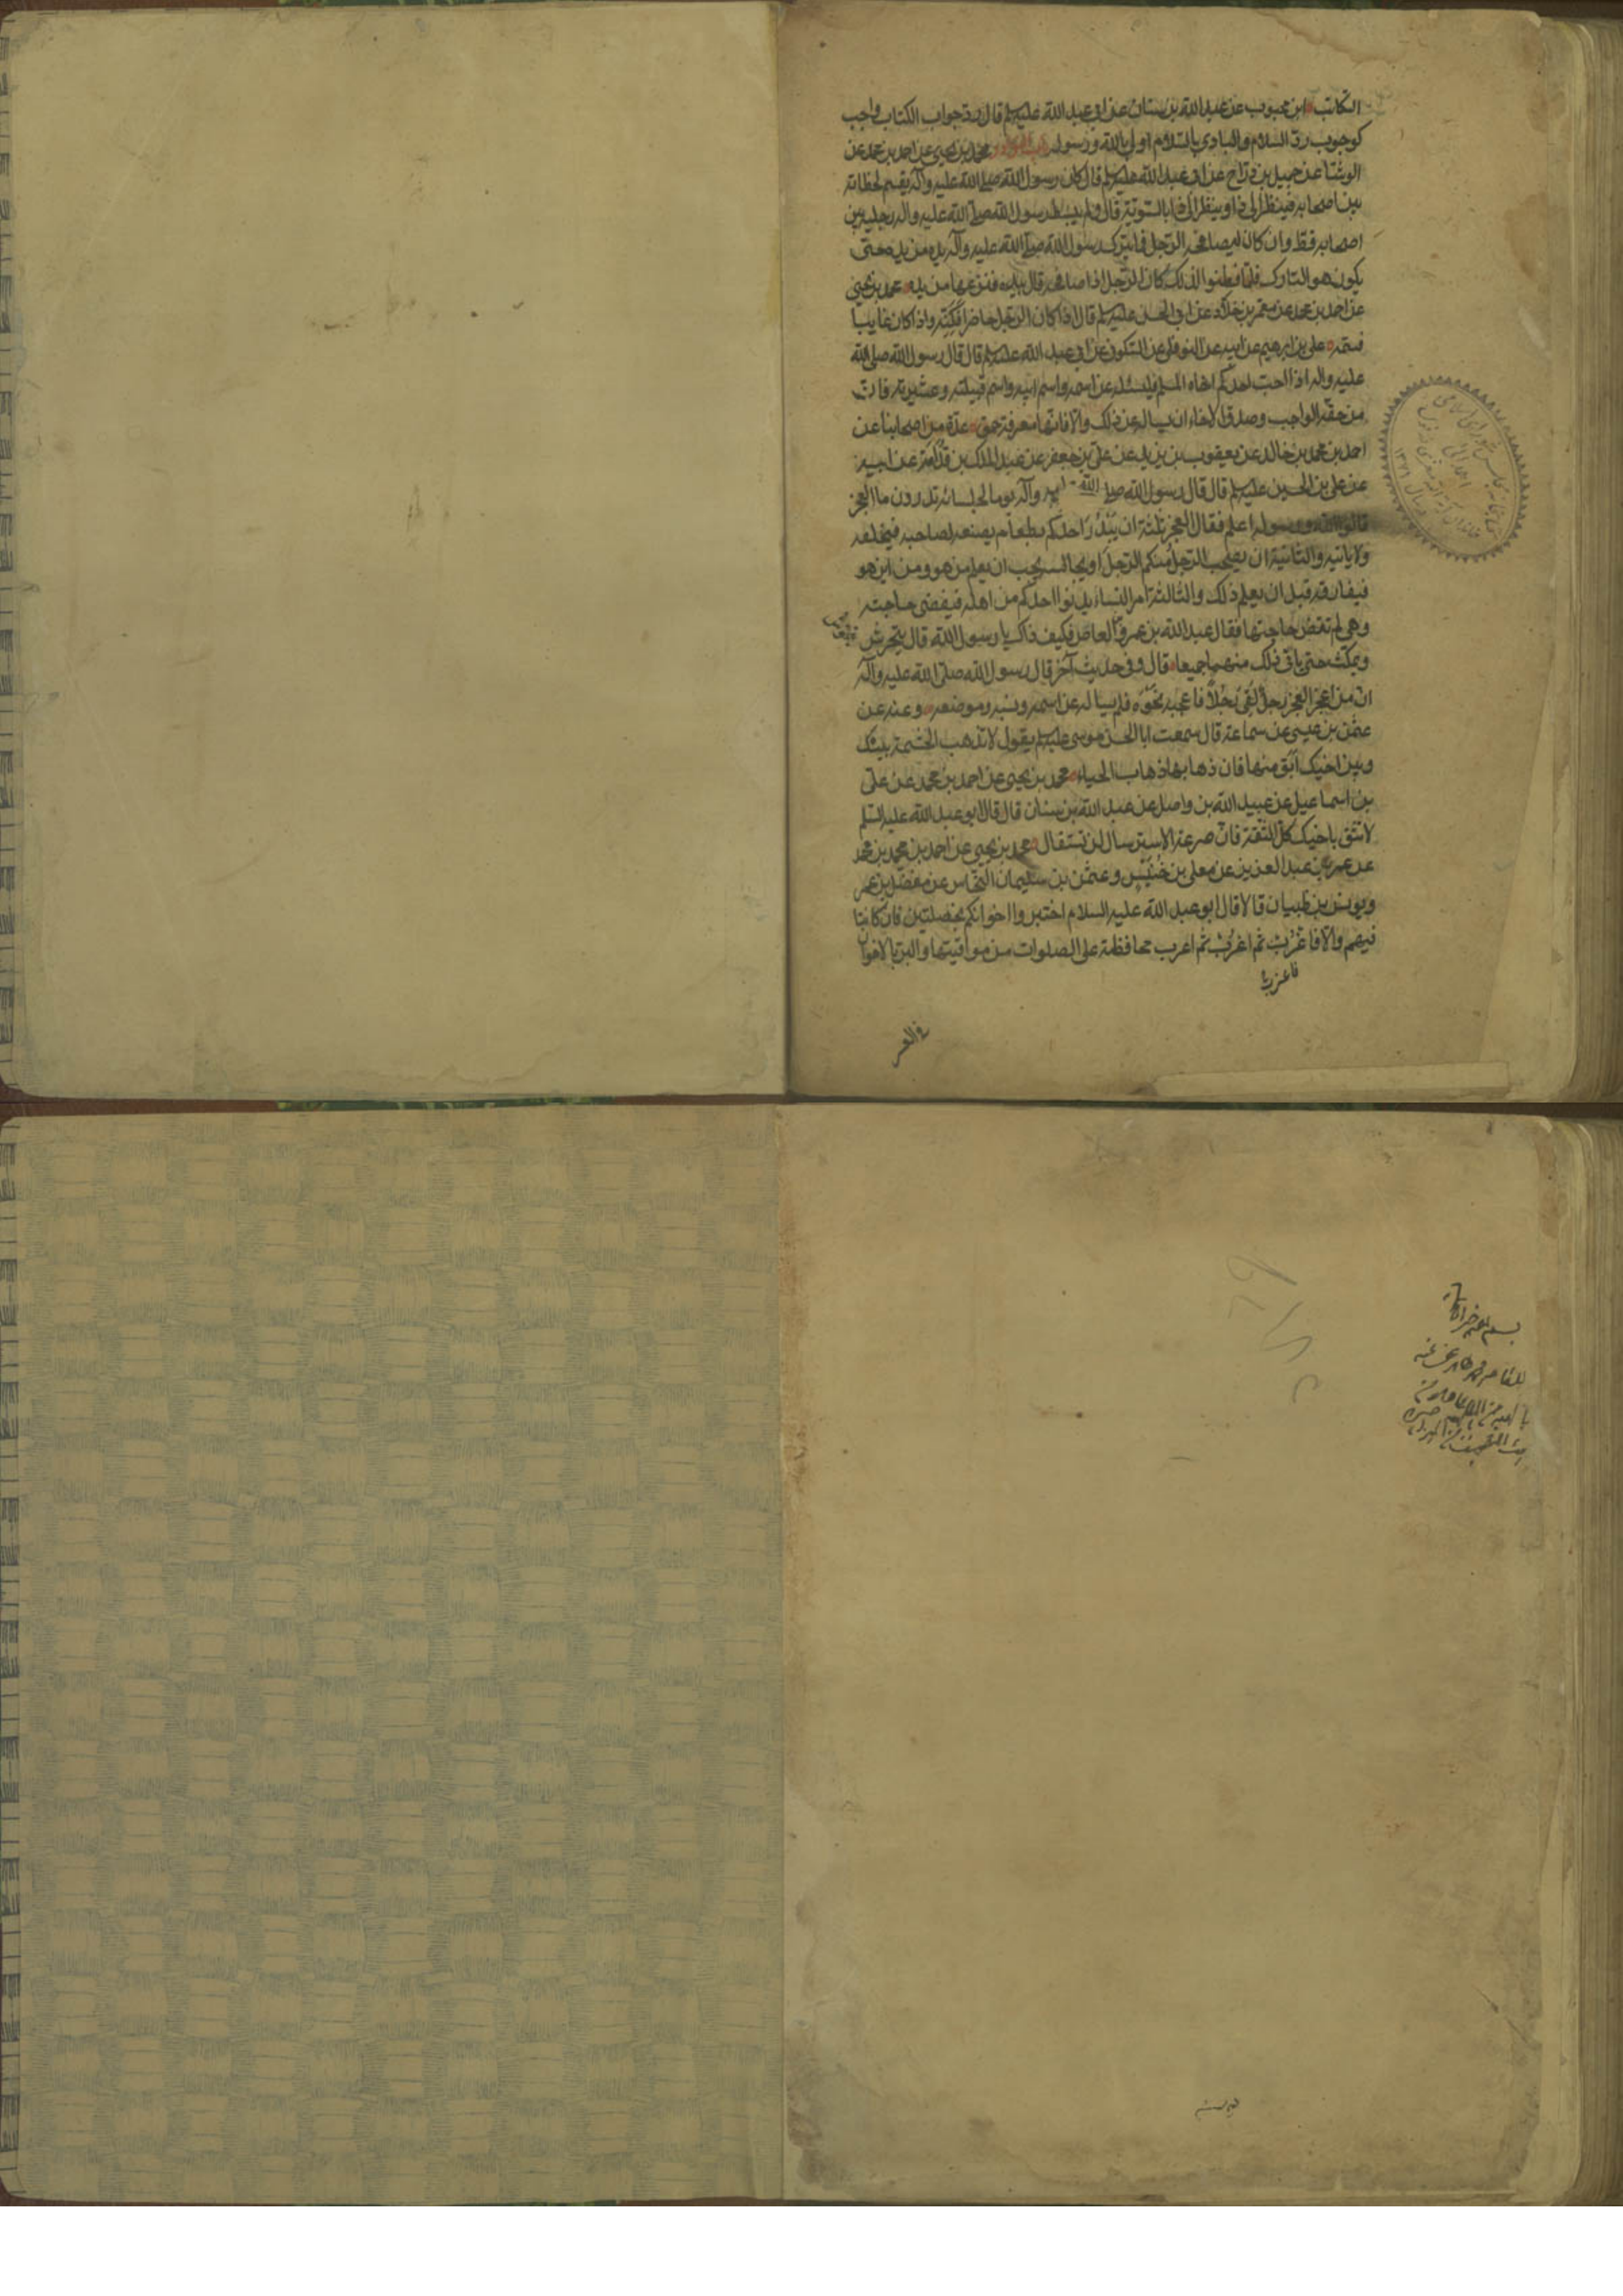 التكاتب ابن محبوب عن عبد الله بن سنان عن ابى عبد الله عليه السلم قال رد جواب الكتاب واجب
كوجوب رد السلام والبادى بالسلام اولى بالله ورسوله محمد بن يحيى عن احمد بن محمد عن
الوشا عن جميل بن دراج عن ابى عبد الله عليه السلم قال كان رسول الله صلى الله عليه وآله يقسم لحظاته
بين اصحابه فينظر الى ذا وينظر الى ذا بالسوية قال ولم يبسط رسول الله صلى الله عليه واله رجليه بين
اصحابه قط وان كان ليصافحه الرجل فما يترك رسول الله صلى الله عليه وآله يده من يده حتى
يكون هو التارك فلما فطنوا لذلك كان الرجل اذا صافحه قال بيده فنزعها من يده محمد بن يحيى
عن احمد بن محمد عن معمر بن خلاد عن ابى الحسن عليه السلم قال اذا كان الرجل حاضرا فكنّه واذا كان غايبا
فسمّه على بن ابرهيم عن ابيه عن النوفلى عن السكونى عن ابى عبد الله عليه السلم قال قال رسول الله صلى الله
عليه واله اذا احب احدكم اخاه المسلم فليسئله عن اسمه واسم ابيه واسم قبيلته وعشيرته فان
من حقه الواجب وصدق الاخاء ان يساله عن ذلك والا فانها معرفة حمق عدة من اصحابنا عن
احمد بن محمد بن خالد عن يعقوب بن يزيد عن على بن جعفر عن عبد الملك بن قدامة عن ابيه
عن على بن الحسين عليه السلم قال قال رسول الله صلى الله وآله يوما لجلسائه تدرون ما العجز
قالوا الله ورسوله اعلم فقال العجز ثلثة ان يبدر احدكم بطعام يصنعه لصاحبه فيخلفه
ولا ياتيه والثانية ان يصحب الرجل منكم الرجل او يجالسه يحب ان يعلم من هو ومن اين هو
فيفارقه قبل ان يعلم ذلك والثالثة امر النساء يدنوا احدكم من اهله فيقضى حاجته
وهى لم تقض حاجتها فقال عبد الله بن عمرو بن العاص فكيف ذاك يا رسول الله قال يتحرش
ويمكث حتى ياتى ذلك منهما جميعا قال وفى حديث آخر قال رسول الله صلى الله عليه وآله
ان من اعجز العجز رجل لقى رجلا فاعجبه نحوه فلم يساله عن اسمه ونسبه وموضعه وعنه عن
عثمن بن عيسى عن سماعة قال سمعت ابا الحسن موسى عليه السلم يقول لا تذهب الحشمة بينك
وبين اخيك ابق منها فان ذهابها ذهاب الحياء محمد بن يحيى عن احمد بن محمد عن على
بن اسماعيل عن عبيد الله بن واصل عن عبد الله بن سنان قال قال ابو عبد الله عليه السلم
لا تثق باخيك كل الثقة فان صرعة الاسترسال لن تستقال محمد بن يحيى عن احمد بن محمد بن محمد
عن عمر بن عبد العزيز عن معلى بن خنيس وعثمن بن سليمان النخاس عن مفضل بن عمر
ويونس بن ظبيان قالا قال ابو عبد الله عليه السلام اختبروا اخوانكم بخصلتين فان كانتا
فيهم والا فاعزب ثم اعزب ثم اعزب محافظة على الصلوات من مواقيتها والبر بالاخوان
فاعزب
فى العسر